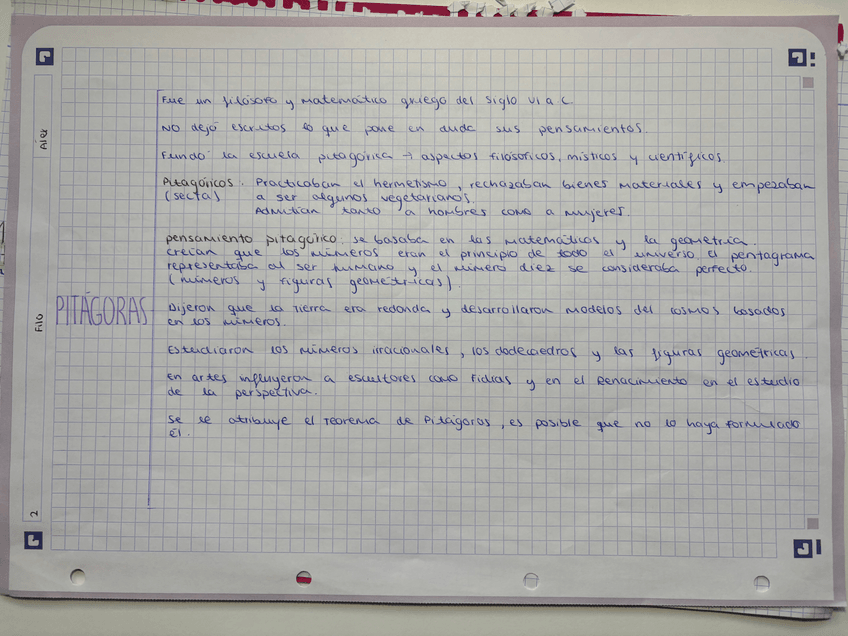 Fue un filósofo y matemático griego del siglo VI a.C.
NO dejó escritos lo que pone en duda sus pensamientos.
Fundó la escuela pitagórica → aspectos filosóficos, místicos y científicos.
Pitagóricos. Practicaban el hermetismo, rechazaban bienes materiales y empezaban
(secta) a ser algunos vegetarianos.
Admitían tanto a hombres como a mujeres.
pensamiento pitagórico: se basaba en las matemáticas y la geometría.
creían que los números eran el principio de todo el universo, el pentagrama
representaba al ser humano y el número diez se consideraba perfecto.
(números y figuras geométricas)
PITÁGORAS
Dijeron que la Tierra era redonda y desarrollaron modelos del cosmos basados
en los números.
Estudiaron los números irracionales, los dodecaedros y las figuras geométricas.
En artes influyeron a escultores como Fidias y en el Renacimiento en el estudio
de la perspectiva.
Se le atribuye el Teorema de Pitágoras, es posible que no lo haya formulado
él.
Filo
2